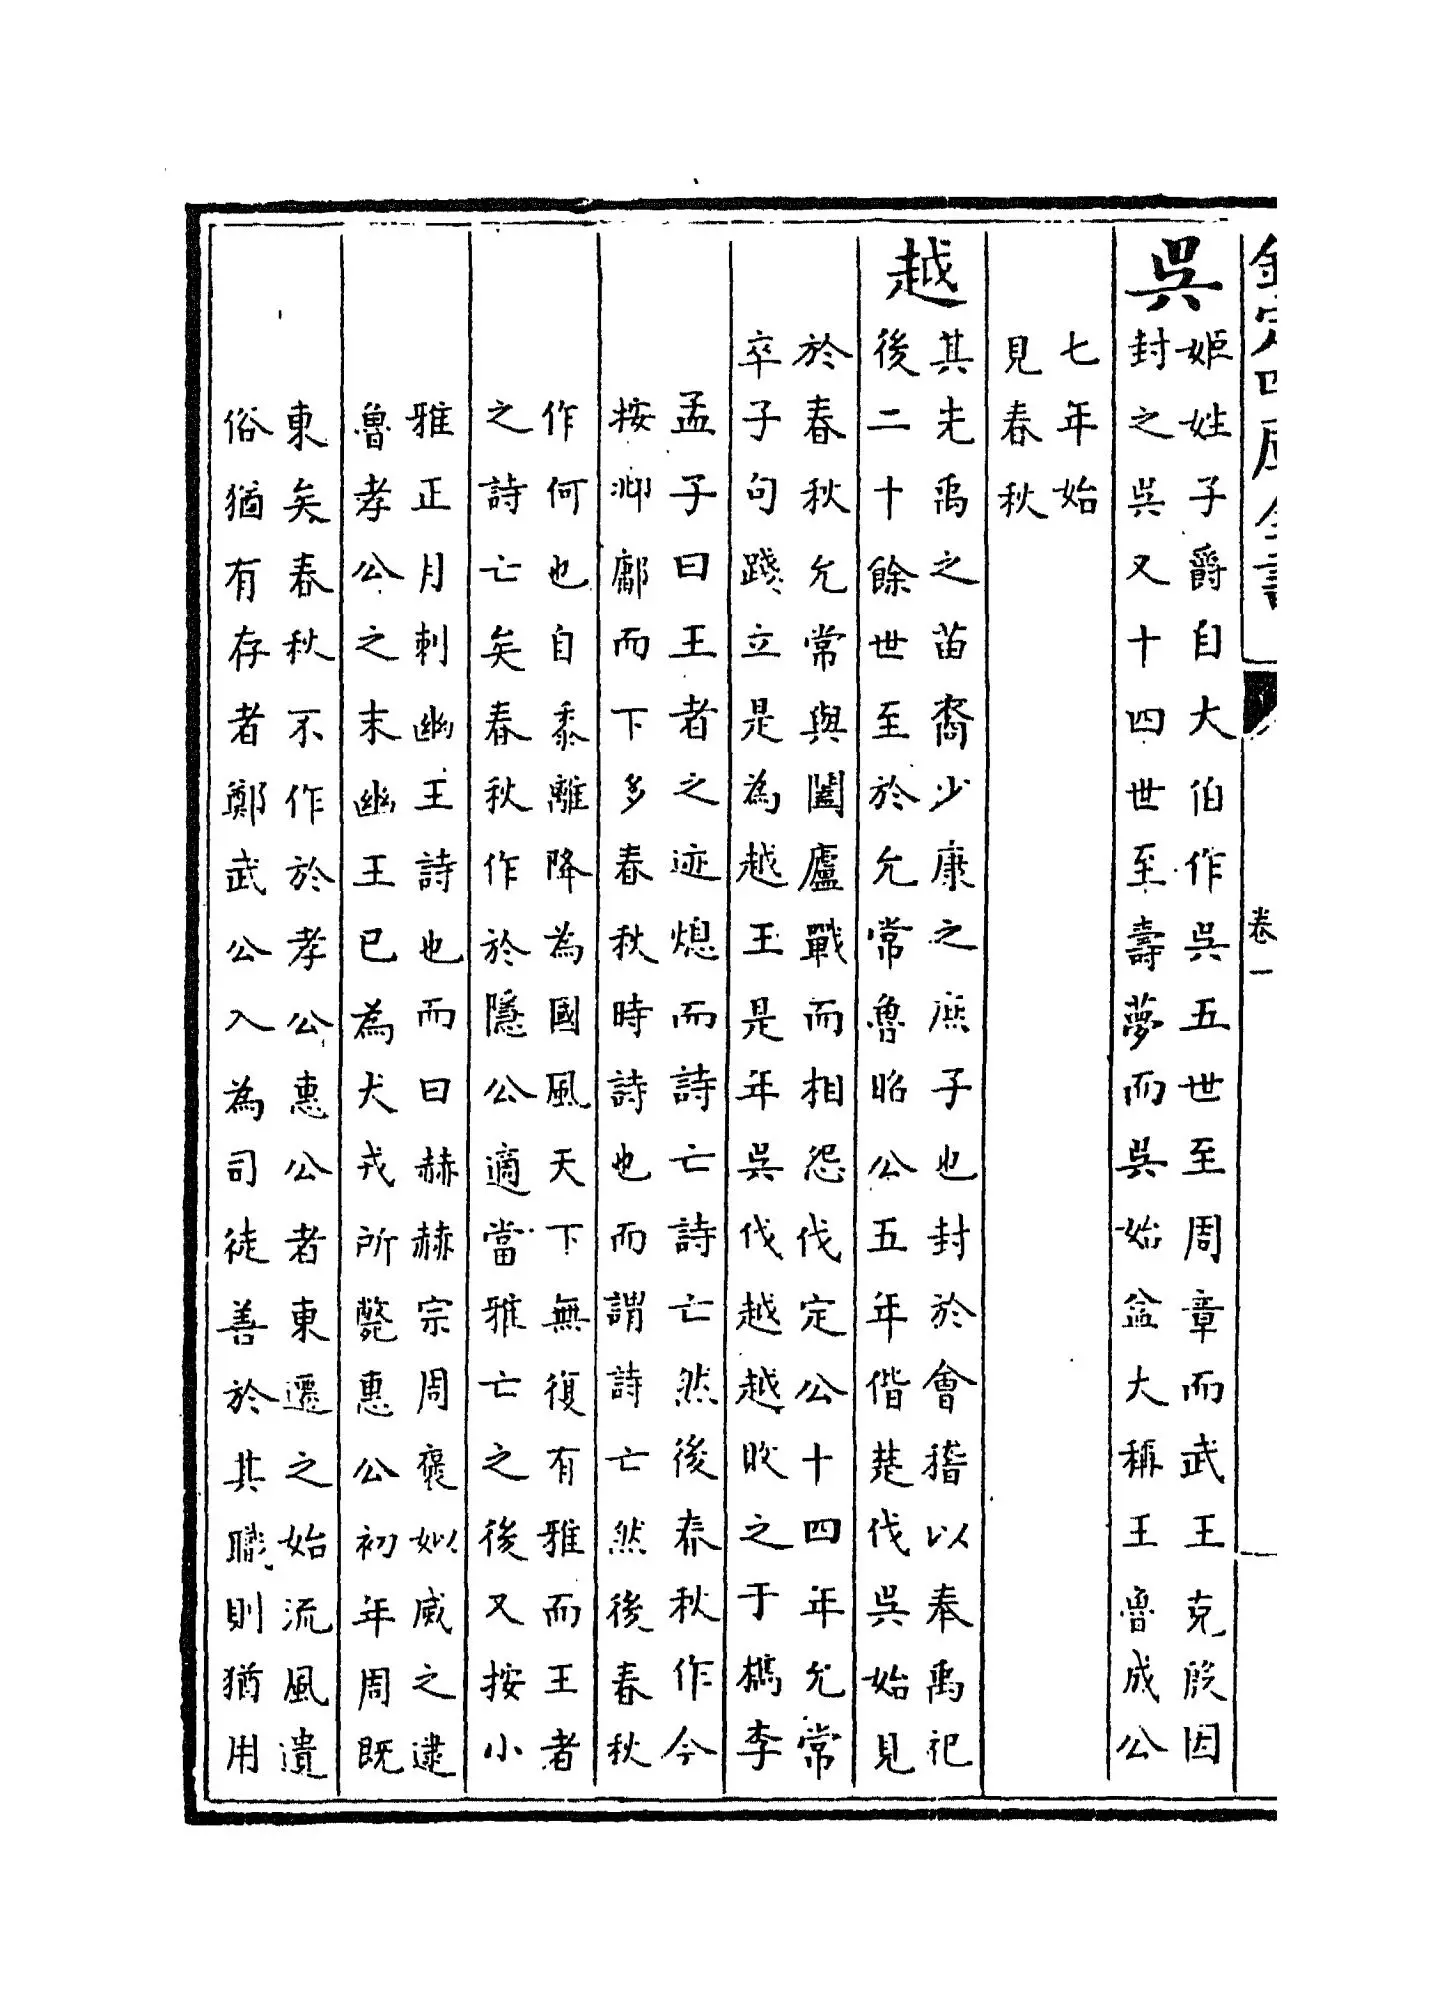 欽定四庫全書
卷一
吳
姬姓子爵自大伯作吳五世至周章而武王克殷因
封之吳又十四世至壽夢而吳始益大稱王魯成公
七年始
見春秋
越
其先禹之苗裔少康之庶子也封於會稽以奉禹祀
後二十餘世至於允常魯昭公五年偕楚伐吳始見
於春秋允常與闔廬戰而相怨伐定公十四年允常
卒子句踐立是為越王是年吳伐越越敗之于檇李
孟子曰王者之迹熄而詩亡詩亡然後春秋作今
按邶鄘而下多春秋時詩也而謂詩亡然後春秋
作何也自黍離降為國風天下無復有雅而王者
之詩亡矣春秋作於隱公適當雅亡之後又按小
雅正月刺幽王詩也而曰赫赫宗周褒姒威之逮
魯孝公之末幽王已為犬戎所斃惠公初年周既
東矣春秋不作於孝公惠公者東遷之始流風遺
俗猶有存者鄭武公入為司徒善於其職則猶用